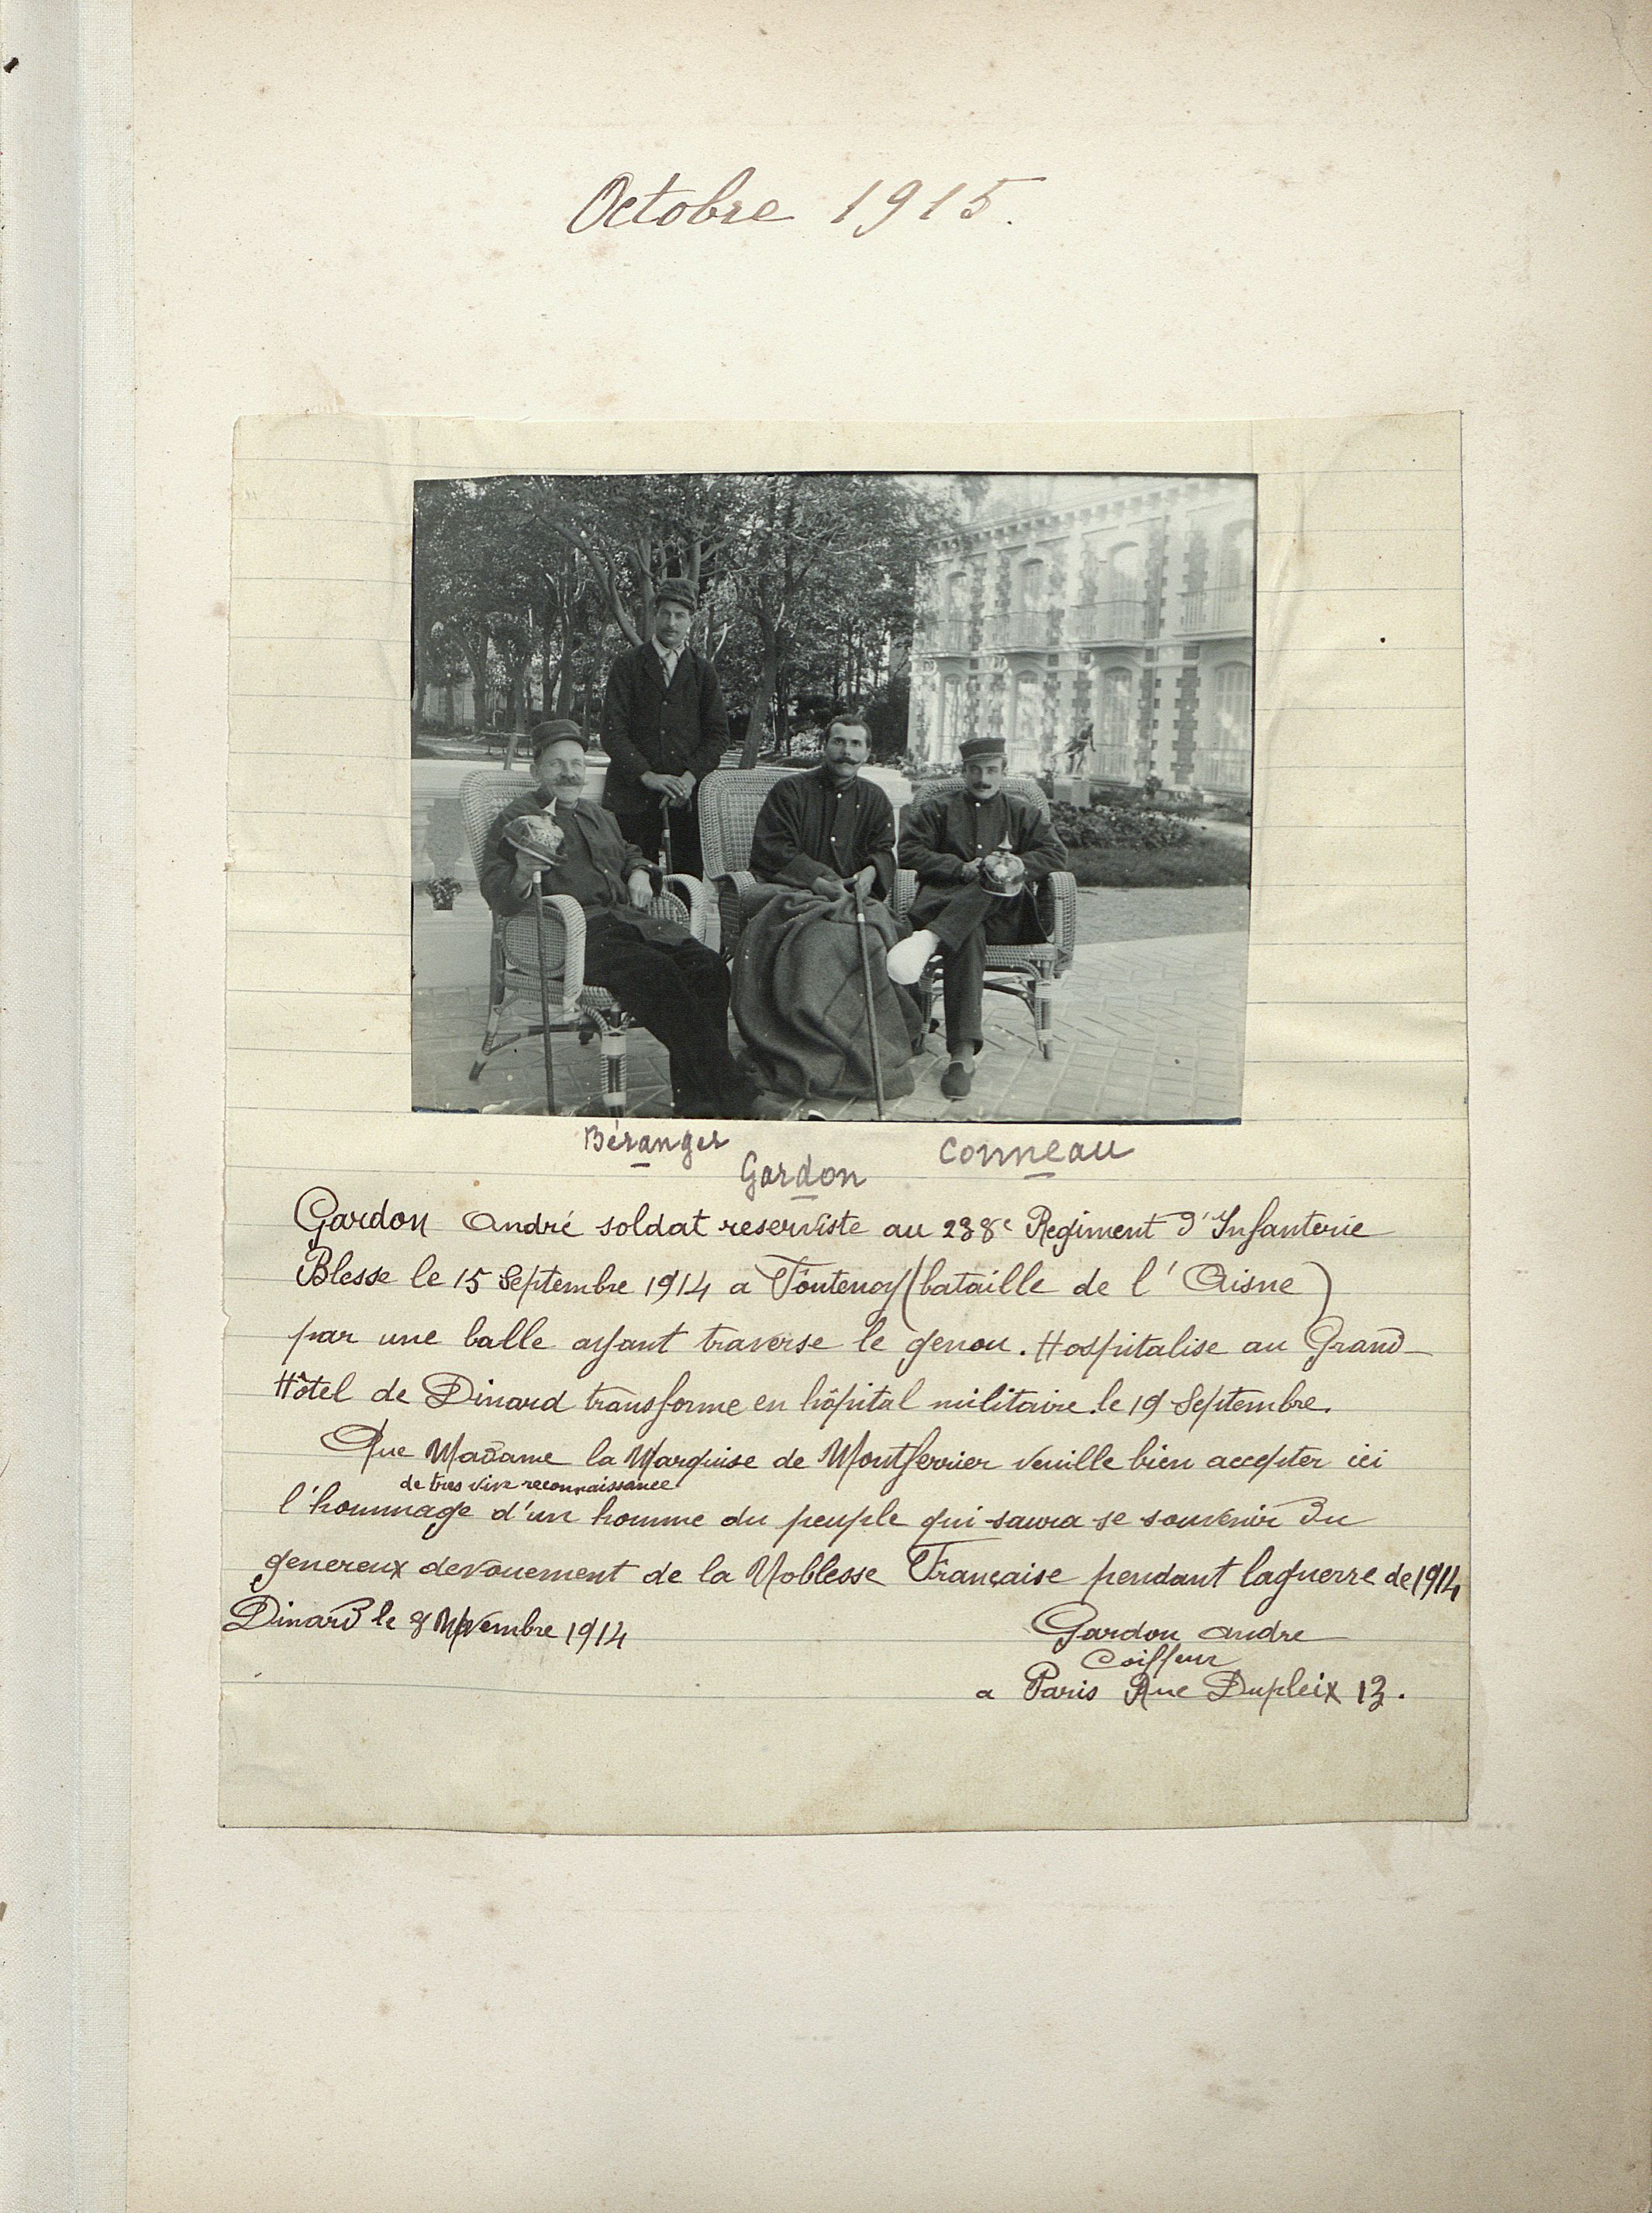 Octobre 1915.
Béranger
Gardon
Conneau
Gardon André soldat reserviste au 238e Regiment d'Infanterie
Blesse le 15 Septembre 1914 a Fontenoy (bataille de l'Aisne)
par une balle ayant traverse le genou. Hospitalise au Grand
Hôtel de Dinard transforme en hôpital militaire le 19 Septembre.
Que Madame la Marquise de Montferrier veuille bien accepter ici
de tres vive reconnaissance
l'hommage d'un homme du peuple qui saura se souvenir du
genereux devouement de la Noblesse Française pendant la guerre de 1914
Dinard le 8 Novembre 1914
Gardon andre
Coiffeur
a Paris Rue Dupleix 13.